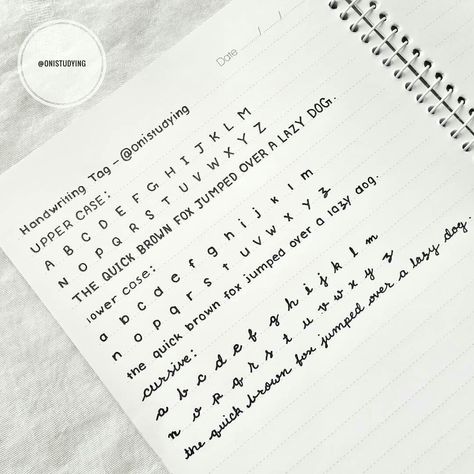 @ONISTUDYING
Date / /
Handwriting Tag - @onistudying
UPPER CASE:
A B C D E F G H I J K L M
N O P Q R S T U V W X Y Z
THE QUICK BROWN FOX JUMPED OVER A LAZY DOG.
lower case:
a b c d e f g h i j k l m
n o p q r s t u v w x y z
the quick brown fox jumped over a lazy dog.
cursive:
a b c d e f g h i j k l m
n o p q r s t u v w x y z
the quick brown fox jumped over a lazy dog